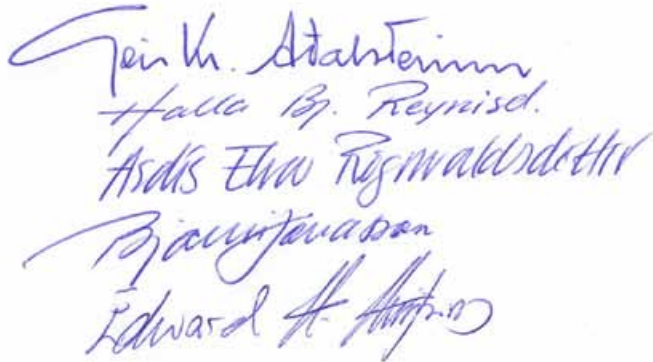 Geir Kr. Aðalsteinsson
Halla Bj. Reynisd.
Ásdís Elva Rögnvaldsdóttir
Bjarni Jónasson
Edward H.